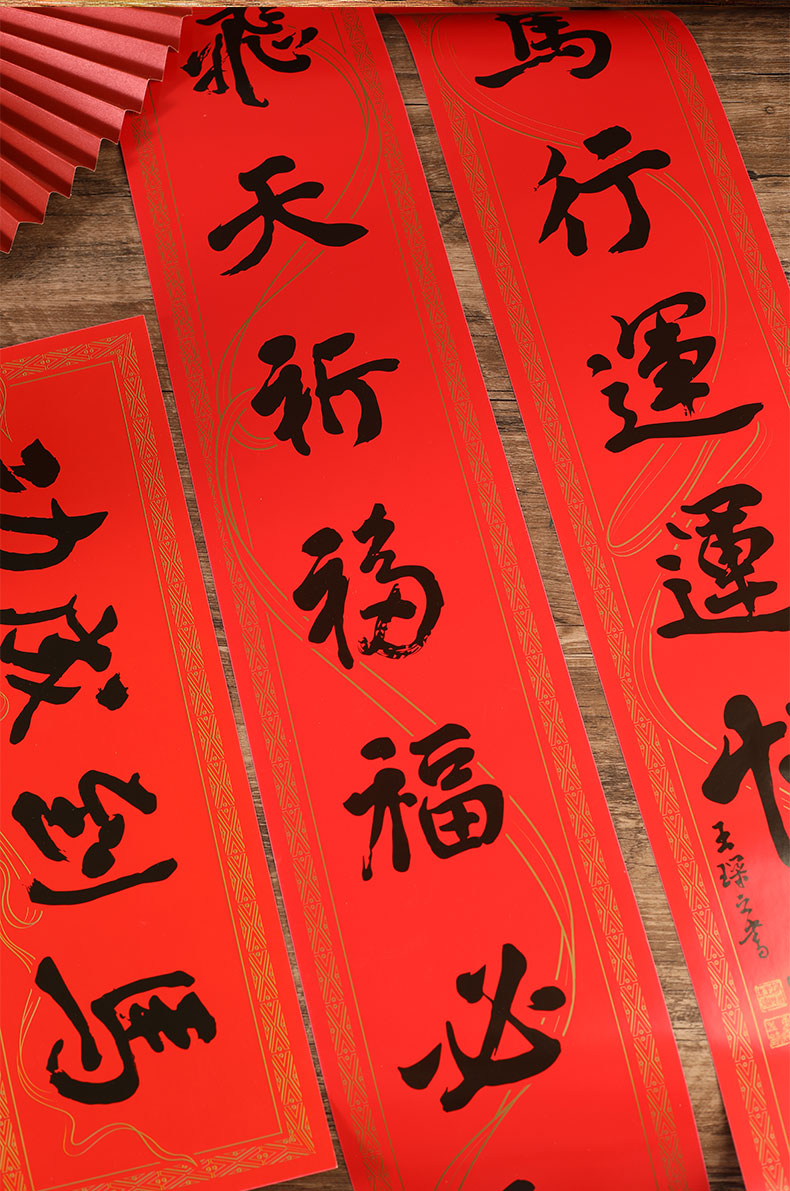 馬行運運
王琛之書
飛天祈福福必
馬到成功